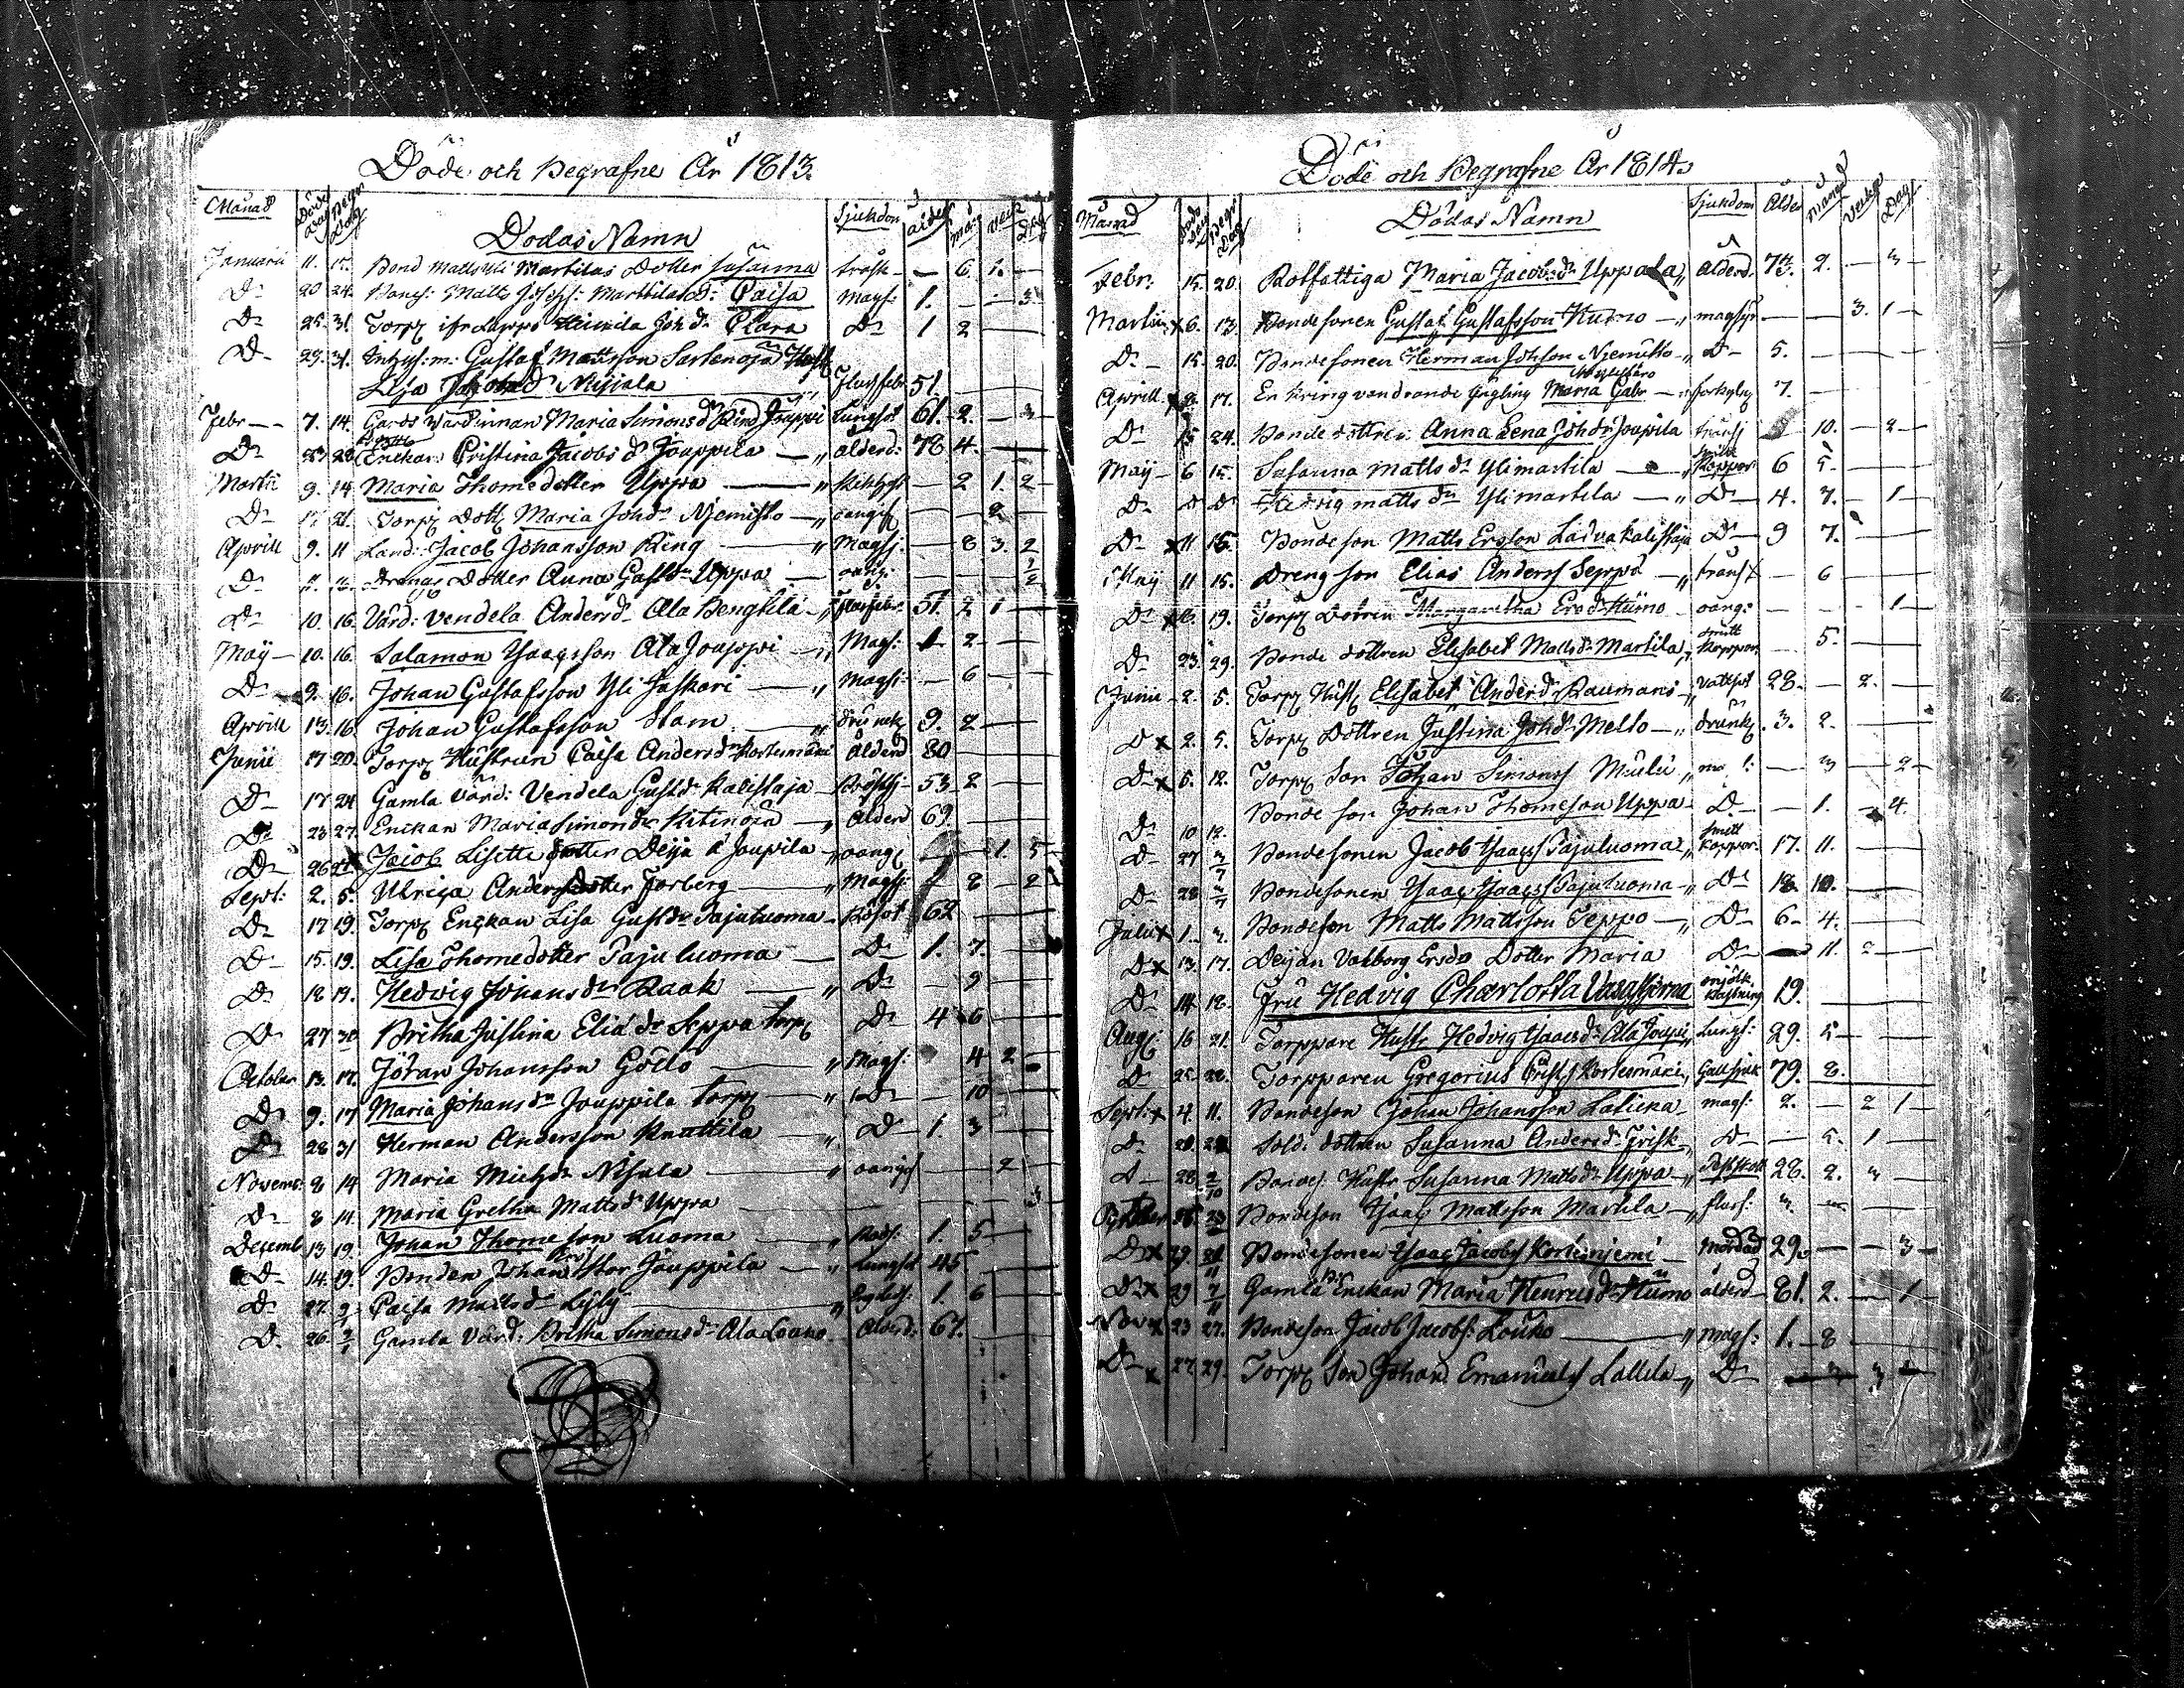 Döde och Begrafne År 1813.
Månad Död Dag Begr Dag Dödas Namn Sjukdom ålder mån veck Dag
Januarii 11. 17. Bond Matts Yli Martilas Dotter Susanna tråsk - — 6. 1. —
Do 20 24. Matts Josephs: Marttilas d: Caisa mags: 1. — — 3.
Do 25. 31. Torp Lappo Heimila Joh dr Clara Do 1 2 —
D- 29. 31. Inhys: m: Gustaf Mattsson Sarlenoja Hust
Lisa Jacobs dr Nisula Flussfebr 51. —
Febr — 7. 14. Gards Wardinnan Maria Simons dr Ring Jouppi Lungsot 61. 2. — 3
Do 23 28 Enckan: Cristina Jacobs dr Jouppila — „ ålderd: 78 4. —
Martii 9. 14 Maria Thomedotter Uppa — „ kikhost — 2 1. 2
Do 17. 21. Torp Dott Maria Johdr Njemisto — „ oangif — — 2 —
Aprill 9. 11 Land: Jacob Johansson Ring — „ Magsj: — 8 3. 2
Do 11. Drengs Dotter Anna Gustdr Uppa — oangi: — — — 1/2
Do 10. 16. Värd: Vendela Andersdr Ala Bengtila — „ Flussfebr. 51. 2 1 —
Maÿ — 10. 16. Salamon Ysaacsson Ala Jouppi — „ Mags: 1 2 —
Do 2. 16. Johan Gustafsson Yli Jaskari — „ Mags: — 6 —
Aprill 13. 16. Johan Gustafsson Stam — „ drunck 9. 2 —
Junii 17 20. Torp Hustrun Caisa Andersdr Kortesmäki Ålderd 80
Do 17 24 Gamla Värd: Vendela Gustdr Kalistaja Bröstsj- 53 2
Do 23 27. Enckan Maria Simonsdr Kitinoja — „ Ålderd 69.
Do 26 27. Jacob Lisette dotter Deija å Joupila — „ oang — 1. 5
Sept: 2. 5. Ulrica Andersdotter Forberg — „ Mags: 8 — 2
Do 17 19. Torp Enckan Lisa Gustdr Pajuluoma — Rödsot 62
Do 15. 19. Lisa Thomedotter Pajuluoma — Do 1. 7. —
Do 18 19. Hedvig Johansdr Raak — „ Do — 9 —
Do 27 30 Britha Justina Elia dr Seppa torp Do 4 6
October 13. 17. Johan Johansson Göllö — „ Mags: 4 2 —
Do 9. 17 Maria Johansdr Jouppila torp — „ Do — 10 —
Do 28 31 Herman Andersson Knuttila — „ Do 1. 3 —
Novemb: 8 14 Maria Michdr Nisula — „ oangif — — 2
Do 8 14 Maria Gretha Mattsdr Uppa — — — — 3
Decemb 13 19 Johan Thomeson Luoma — „ Röds: 1. 5 —
Do 14. 19. Bonden Johan Stor Jouppila — „ Lungsot 45
Do 27. 2/1 Caisa Mattsdr Lyly — „ 1. 6
Do 26. 2/1 Gamla Värd: Britha Simonsdr Ala Louko Ålderd: 67.
Döde och Begrafne År 1814.
Månad Död Dag Begr Dag Dödas Namn Sjukdom Ålder Månad Veckor Dag
Febr: 15. 20. Rotfattiga Maria Jacobsdr Uppala „ Ålderd. 73. 2. — 3 —
Martii x 6. 13. Bondesonen Gustaf Gustafsson Kumo — „ magsju — — 3. 1 —
Do 15. 20. Bondesonen Herman Johsson Njemisto — „ Do 5. —
Aprill x 8. 17. En kring vandrande Yngling Maria Gabr — „ forkylnj 7. —
Do 15 24. Bonde dottren Anna Lena Johdr Joupila tränsj 10. — 2 —
Maÿ — 6 15. Susanna Mattsdr Ylimartila — „ Smitt koppor 6 5 —
Do Do Do Hedvig Mattsdr Ylimartila — „ Do 4. 7. — 1 —
Do x 11 15. Bondeson Matts Ersson Laiva Kalistaja Do 9 7. —
Maÿ 11 15. Drengson Elias Anderss Seppä — „ tränsj — 6 —
Do x 6. 19. Torp Dottren Margaretha Ersdr Kumo oang: — — 1 —
Do 23. 29. Bonde dottren Elisabet Mattsdr Martila „ Smitt koppor — 5. —
Junii 2. 5. Torp Hust Elisabet Andersdr Raumani „ vattsot 28. — 2. —
Do x 2. 5. Torp Dottren Justina Johdr Melto — „ drunk 3. 2. —
Do x 5. 12. Torp Son Johan Simonss Muulu „ ma s: — 3 — 2 —
Do 10 12. Bonde son Johan Thomeson Uppa Do — 1. — 4.
Do 27 3/7 Bondesonen Jacob Ysaacss Pajuluoma „ Smitt koppor 17. 11. —
Do 28 3/7 Bondesonen Ysaac Ysaacss Pajuluoma — „ Do 10. —
Julii x 1. 3. Bondeson Matts Mattsson Teppo — „ Do 6 4. —
Do x 13. 17. Deijan Valborg Ersdr Dotter Maria Do — 11. 2 —
Do 14 18. Fru Hedvig Charlotta Vasastjerna mjölk 19. —
Aug 16 21. Torppare Hustr Hedvig Ysaacsdr Ala Joupi Lungs: 29. 5 —
Do 25. 28. Torpparen Gregorius Christ Kortesmäki „ Gallsjuk 79. 8. —
Sept: x 4 11. Bondeson Johan Johansson Latikka „ mags: 2. — 2 1 —
Do 20. Sold: dottren Susanna Andersdr Frisk „ Do — 5. 1 —
Do 28 2/10 Hustr Susanna Mattsdr Uppa — „ 28. 2. 3 —
October 23 Bondeson Ysaac Mattsson Martila — „ fluss:
Do x 29. Bondesonen Ysaac Jacobss Kortenjemi — Mördad 29. — — 3 —
Do x 29 Gamla Enckan Maria Henricsdr Kumo ålderd 81. 2. — 1 —
Nov x 23 27. Bondeson Jacob Jacobs: Louko — „ mags: 1. 8
Do x 27. 29. Torp Son Johan Emanuelss Lallila — „ Do 3